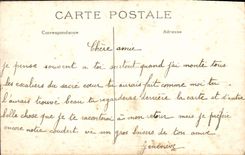 CARTE POSTALE
Correspondance
Adresse
Chère amie
je pense souvent a toi surtout quand j'ai monté tous
les escaliers du sacré coeur tu aurais fait comme moi tu
l'aurais trouvé beau tu regarderas derrière la carte et d'autre
belle chose que je te raconterai à mon retour mais je préfère
encore notre un gros baiser de ton amie
Geneviève